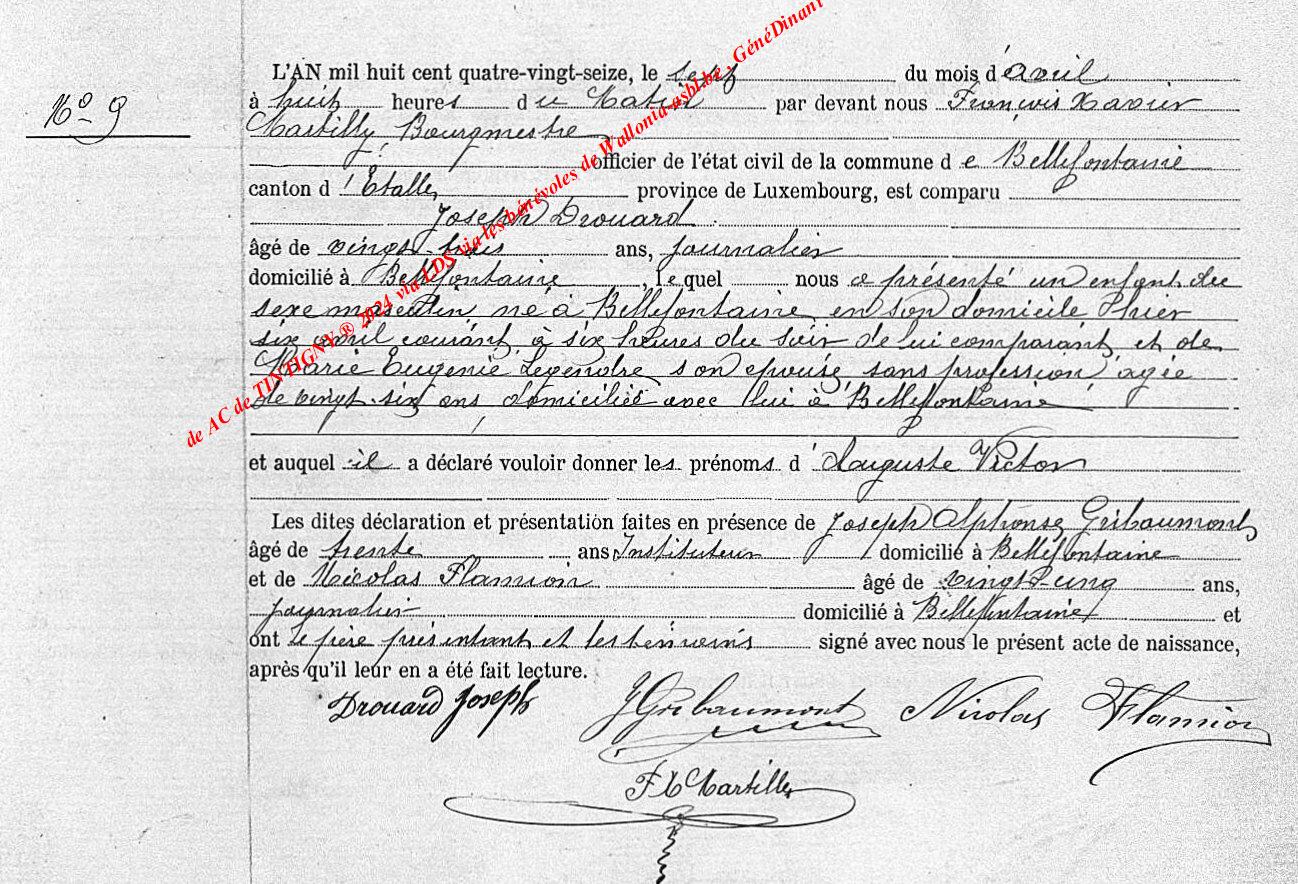 L'AN mil huit cent quatre-vingt-seize, le sept du mois d'avril
No 9
à huit heures du Matin par devant nous François Xavier
Martilly, Bourgmestre
officier de l'état civil de la commune de Bellefontaine
canton d'Etalle province de Luxembourg, est comparu
Joseph Drouard
âgé de vingt-trois ans, journalier
domicilié à Bellefontaine, lequel nous a présenté un enfant du
sexe masculin, né à Bellefontaine en son domicile hier
six avril courant, à six heures du soir de lui comparant, et de
Marie Eugenie Legendre son epouse, sans profession, agée
de vingt-six ans domiciliée avec lui à Bellefontaine
et auquel il a déclaré vouloir donner les prénoms d'Auguste Victor
Les dites déclaration et présentation faites en présence de Joseph Alphonse Gribaumont
âgé de trente ans Instituteur domicilié à Bellefontaine
et de Nicolas Flamion âgé de vingt-cinq ans,
journalier domicilié à Bellefontaine et
ont le père présentant et les témoins signé avec nous le présent acte de naissance,
après qu'il leur en a été fait lecture.
Drouard Joseph JGribaumont Nicolas Flamion
F X Martilly
de AC de TINTIGNY ® 2024 via LDS via les bénévoles de Wallonia-asbl.be - GénéDinant